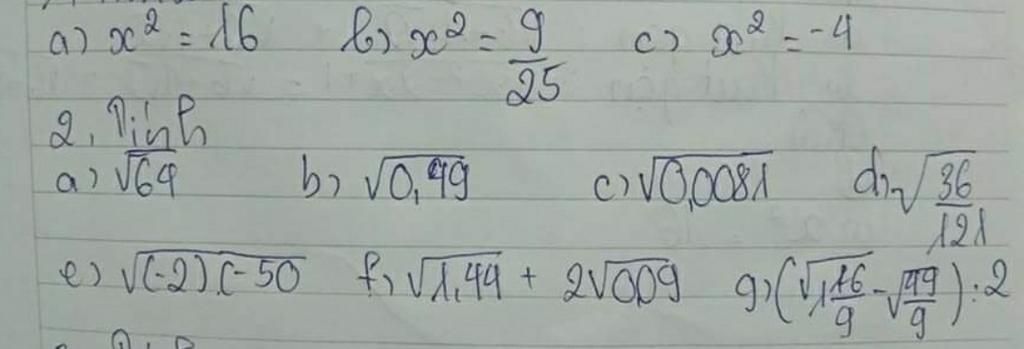 a) x² = 16 b) x² = 9/25 c) x² = -4
2, Tính
a) √64 b) √0,49 c) √0,0081 d) √36/121
e) √(-2).(-50 f) √1,44 + 2√0,09 g) (√1 16/9 - √49/9) : 2